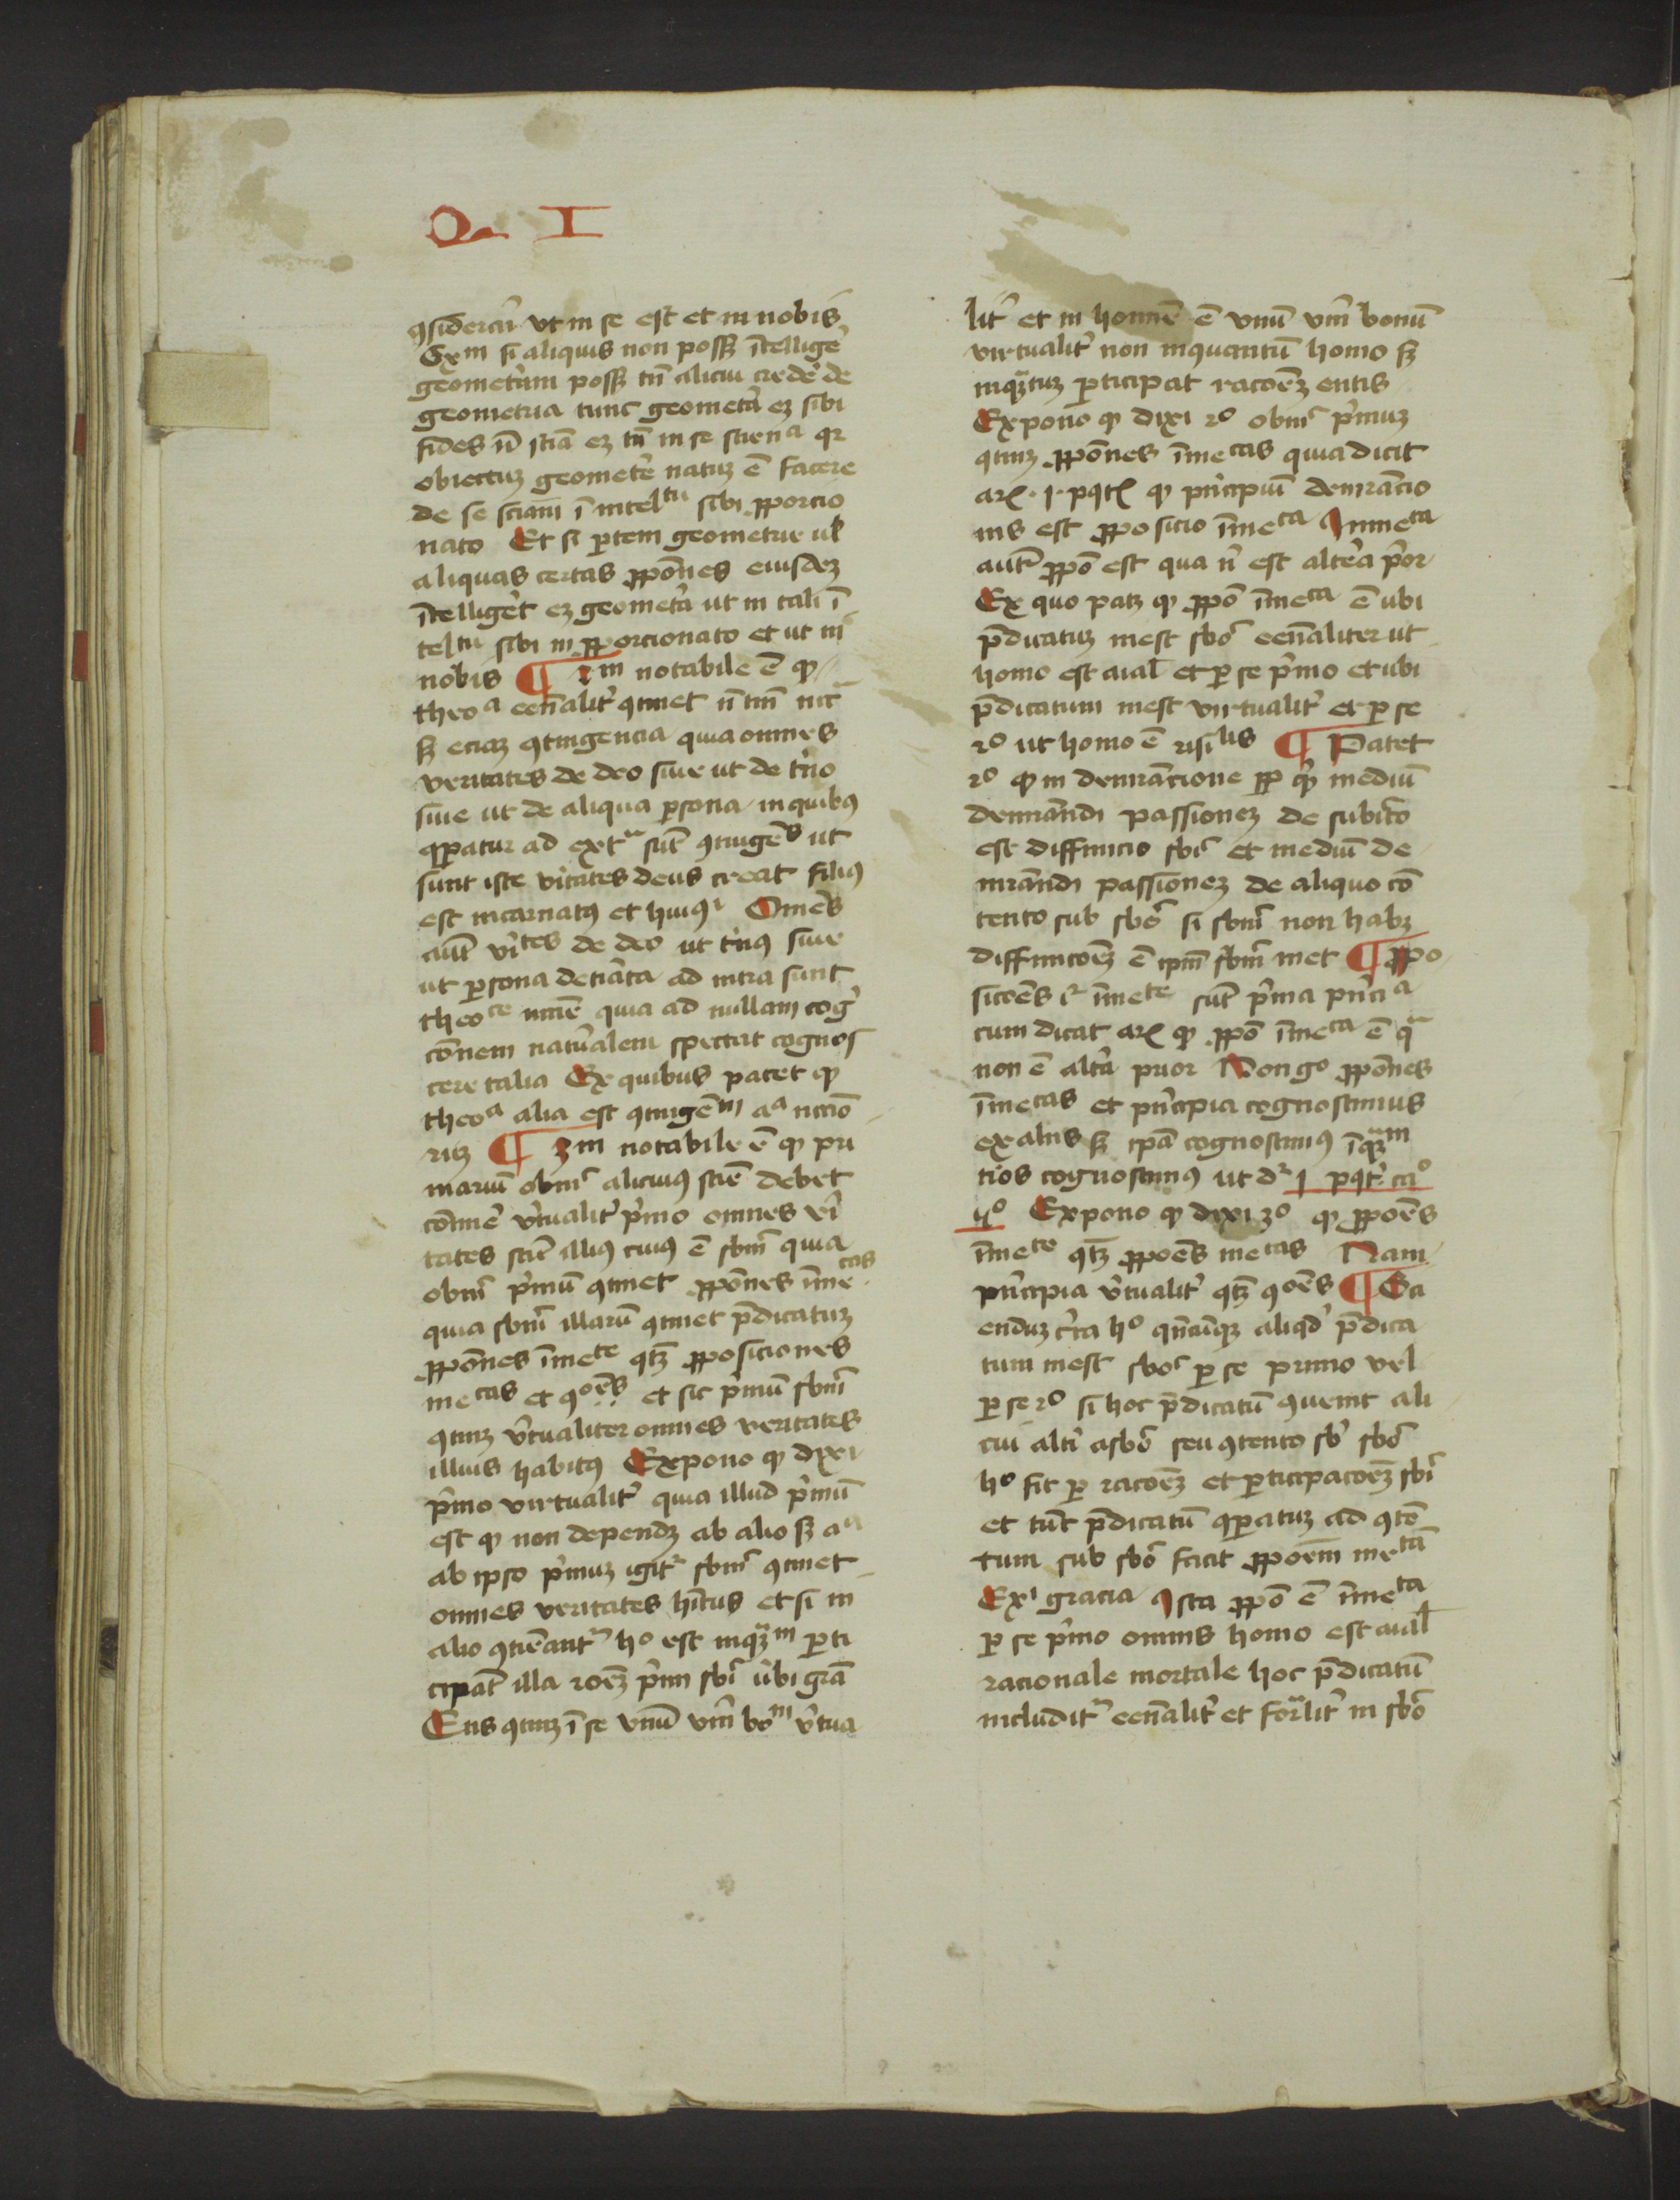 Q I
ꝯsideret᷑ vt in se est et in nobis
Exm si aliquis non posset ītellige᷑
geometriam posset tn̄ alicui crede᷑ de
geometria tunc geomet᷑a eēt sibi
fides nō sciā eēt tn̄ in se sciena qꝛ
obiectuꝫ geomet᷑e natuꝫ ē facere
de se sciam ī inteltu sibi ꝓporcio
nato Et si ꝑtem geometrie ul̓
aliquas certas ꝓpōnes eiusdeꝫ
ītelliger̄t eēt geomet᷑a ut in tali ī
teltu sibi in ꝓporcionato et ut in
nobis ¶ 2m notabile ē ꝙ
theoa eēn̄alit᷑ ꝯtinet nō tm̄ nc̄ia
sꝫ eciaꝫ ꝯtingencia quia omnes
veritates de deo siue ut de t᷑no
siue ut de aliqua ꝑsona in quibꝰ
ꝯꝑatur ad extra sūt ꝯtingēs ut
sunt iste v᷑itates deus creat filiꝰ
est incarnatꝰ et huiꝰi Omēs
aūt v᷑ites de deo ut t᷑nꝰ siue
ut ꝑsona det᷑iata ad intra sunt
theoce nc̄cīe quia ad nullam cog᷑
cōnem nat᷑alem spectat cognos
cere talia Ex quibus patet ꝙ
theoa alia est ꝯtingēm aa nccīo
riꝫ ¶ 3m notabile ē ꝙ pri
mariū obm̄ alicuiꝰ scīe debet
cōtine᷑ v᷑tualit᷑ p᷑mo omnes v᷑i
tates scīe illiꝰ cuiꝰ ē sbm̄ quia
obm̄ p᷑mū ꝯtinet ꝓpōnes īmecas
quia sbm̄ illarū ꝯtinet p̄dicatuꝫ
ꝓpōnes īmete ꝯtꝫ ꝓposiciones
mecas et ꝯoēs et sic p᷑mū sbm̄
ꝯtineꝫ v᷑tualiter omnes veritates
illius habitꝰ Expono ꝙ dixi
p᷑mo virtualit᷑ quia illud p᷑mū
est ꝙ non dependꝫ ab alio sꝫ aa
ab ipso p᷑muꝫ igit᷑ sbm̄ ꝯtinet
omnes veritates hītus et si in
alio ꝯtineant᷑ ho est inqꝫm ꝑti
cipāt illa roēꝫ p᷑mi sbi v᷑bi grā
Ens ꝯtineꝫ ī se vnū vm̄ bom v᷑tua
lit᷑ et in homīe ē vnū vm̄ bonū
virtualit᷑ non inquantū homo sꝫ
inqꝫtuꝫ ꝑticipat racōeꝫ entis
Expono ꝙ dixi 2o obm̄ p᷑muꝫ
ꝯtineꝫ ꝓpōnes īmecas quia dicit
arꝫ · 1 · pqꝛꝫ ꝙ p᷑ncipiū demrāncio
nis est ꝓposicio īmeca Inmeca
aut̄ ꝓpō est qua nō est alt᷑a p᷑or
Ex quo patꝫ ꝙ ꝓpō īmeca ē ubi
p̄dicatuꝫ inest sbō eēn̄aliter ut
homo est aīal et ꝑ se p᷑mo et ubi
p̄dicatum inest virtualit᷑ et ꝑ se
2o ut homo ē risilis ¶ Patet
2o ꝙ in demrāncione ꝓp ꝙ mediū
demrāndi passioneꝫ de subiecto
est diffinicio sbi et mediū de
mrāndi passioneꝫ de aliquo cō
tento sub sbō si sbm̄ non habꝫ
diffinicōeꝫ ē ipm̄ sbm̄ met ¶ Ppo
sicōes īmete sūt p᷑ma p᷑ncia
cum dicat arꝫ ꝙ ꝓpō īmeca ē qa
non ē alt᷑a prior Non go ꝓpōnes
īmecas et p᷑ncipia cognoscimus
ex aliis sꝫ ipā cognoscimꝰ īqꝫm
t᷑ios cognoscimꝰ ut d᷑r 1 pqt᷑ cao
40 Expono ꝙ dixi 3o ꝙ ꝓpoēs
īmete ꝯtꝫ ꝓpoēs mecas Nam
p᷑ncipia v᷑tualit᷑ ꝯtꝫ ꝯoēs ¶ Sci
enduꝫ c᷑ca ho qn̄cūqꝫ aliqd̓ p̄dica
tum inest sbō ꝑ se primo vel
ꝑ se 2o si hoc p̄dicatū ꝯuenit ali
cui alt᷑i a sbō seu ꝯtento sb᷑ sbō
ho fit ꝑ racōeꝫ et ꝑticipacōeꝫ sbi
et tūc p̄dicatū ꝯꝑatuꝫ ad ꝯtē
tum sub sbō facit ꝓpoēm metā
Exi gracia Ista ꝓpō ē īmeta
ꝑ se p᷑mo omnis homo est aīal
racionale mortale hoc p̄dicatū
includit᷑ eēn̄alit᷑ et forāli᷑t in sbō